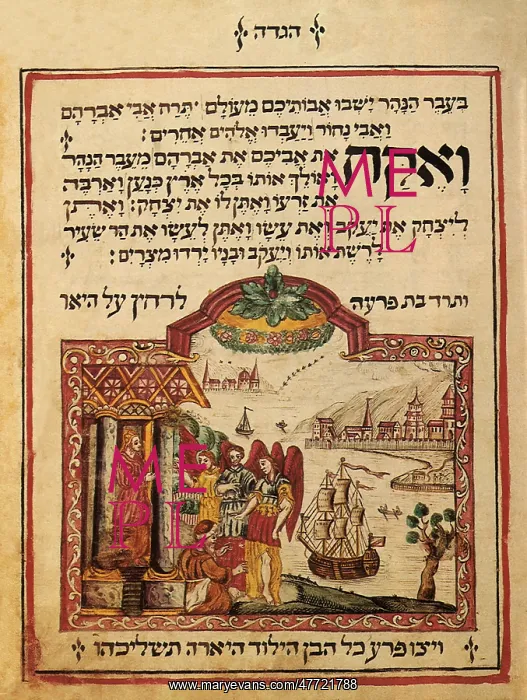 הגדה
בְּעֵבֶר הַנָּהָר יָשְׁבוּ אֲבוֹתֵיכֶם מֵעוֹלָם תֶּרַח אֲבִי אַבְרָהָם
וַאֲבִי נָחוֹר וַיַּעַבְדוּ אֱלֹהִים אֲחֵרִים :
וָאֶקַּח אֶת אֲבִיכֶם אֶת אַבְרָהָם מֵעֵבֶר הַנָּהָר
וָאוֹלֵךְ אוֹתוֹ בְּכָל אֶרֶץ כְּנַעַן וָאַרְבֶּה
אֶת זַרְעוֹ וָאֶתֵּן לוֹ אֶת יִצְחָק : וָאֶתֵּן
לְיִצְחָק אֶת יַעֲקֹב וְאֶת עֵשָׂו וָאֶתֵּן לְעֵשָׂו אֶת הַר שֵׂעִיר
לָרֶשֶׁת אוֹתוֹ וְיַעֲקֹב וּבָנָיו יָרְדוּ מִצְרָיִם :
ותרד בת פרעה לרחץ על היאו
ויצו פרע כל הבן הילוד היארה תשליכהו
ME
PL
ME
PL
www.maryevans.com/47721788